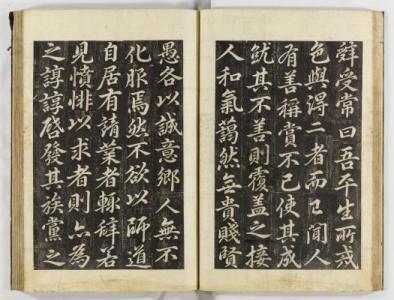 辤受常曰吾平生所戒
色與得二者而已聞人
有善稱賞不已使其成
就其不善則覆盖之接
人和氣藹然無貴賤賢
愚各以誠意鄉人無不
化服焉然不欲以師道
自居有請業者輙辞若
見憤悱以求者則亦為
之諄諄啓發其族黨之